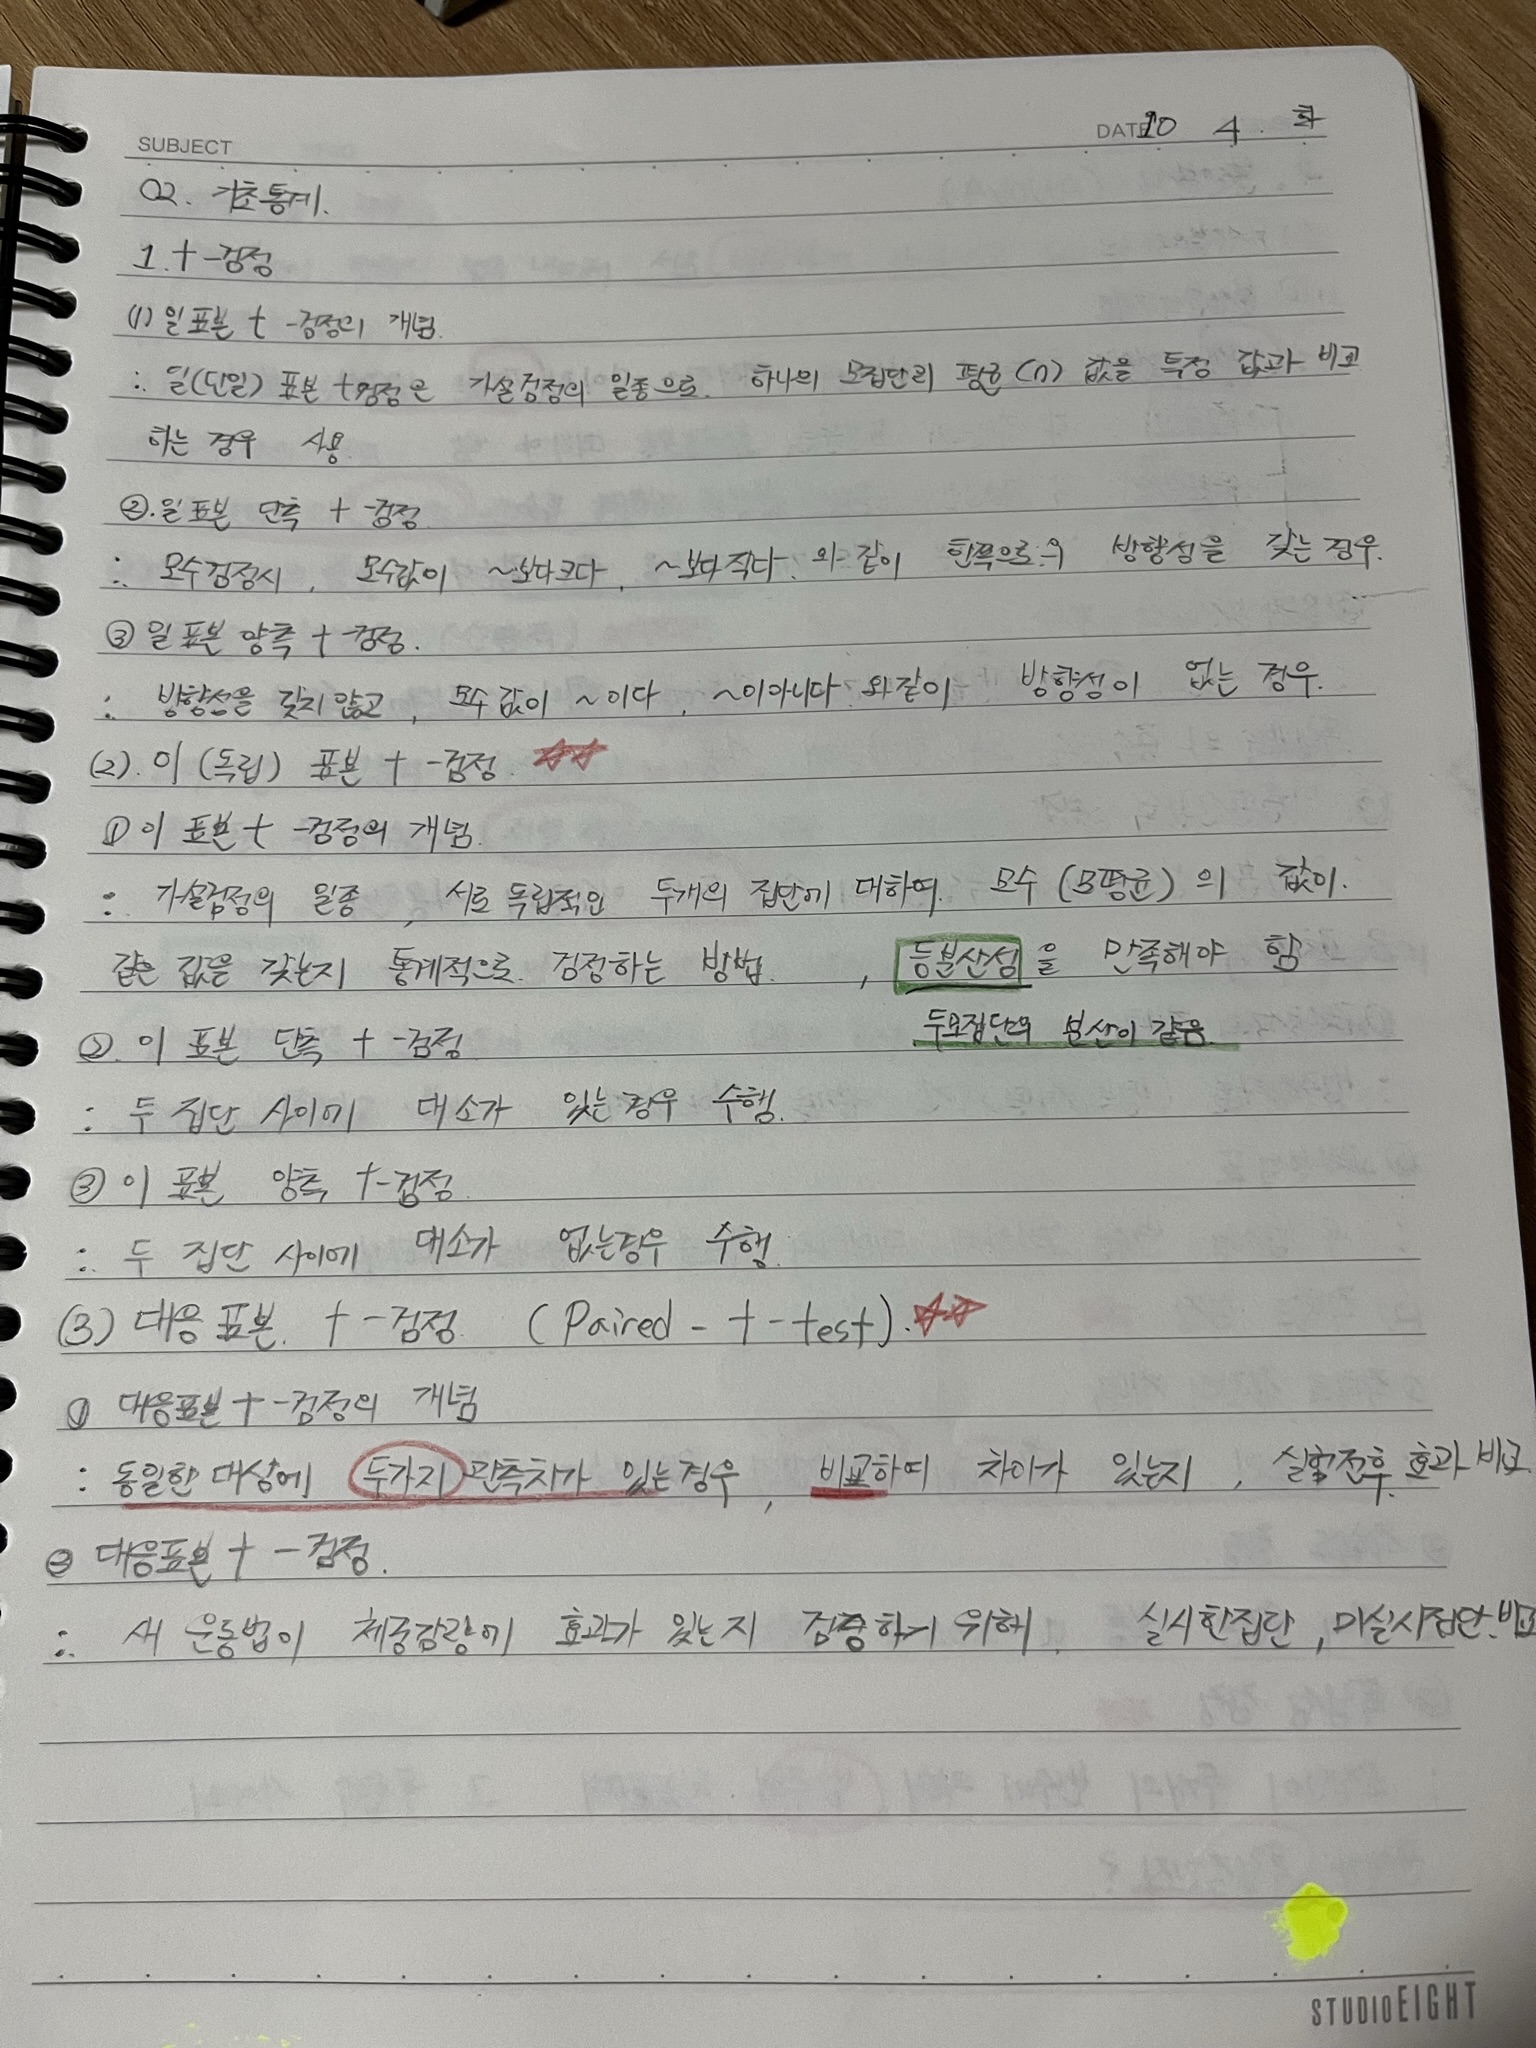 SUBJECT
DATE 10 4. 화
02. 기초통계.
1. t-검정
(1) 일표본 t-검정의 개념.
: 일(단일) 표본 t검정은 가설검정의 일종으로. 하나의 모집단의 평균(n) 값을 특정 값과 비교
하는 경우 사용
②. 일표본 단측 t-검정
: 모수검정시, 모수값이 ~보다크다, ~보다작다. 와 같이 한쪽으로의 방향성을 갖는 경우.
③ 일표본 양측 t-검정.
: 방향성을 갖지 않고, 모수 값이 ~이다, ~이아니다 와같이 방향성이 없는 경우.
(2). 이(독립) 표본 t-검정. ☆☆
① 이 표본 t-검정의 개념.
: 가설검정의 일종, 서로 독립적인 두개의 집단에 대하여. 모수(모평균)의 값이.
같은 값을 갖는지 통계적으로. 검정하는 방법. , 등분산성을 만족해야 함
두모집단의 분산이 같음.
②. 이 표본 단측 t-검정
: 두 집단 사이에 대소가 있는경우 수행.
③ 이 표본 양측 t-검정.
: 두 집단 사이에 대소가 없는경우 수행.
(3) 대응표본. t-검정. (Paired-t-test). ☆☆
① 대응표본 t-검정의 개념
: 동일한 대상에 두가지 관측치가 있는경우, 비교하여 차이가 있는지, 실험전후 효과 비교.
② 대응표본 t-검정.
: 새 운동법이 체중감량에 효과가 있는지 검증하기 위해, 실시한집단, 미실시집단.비교
STUDIOEIGHT